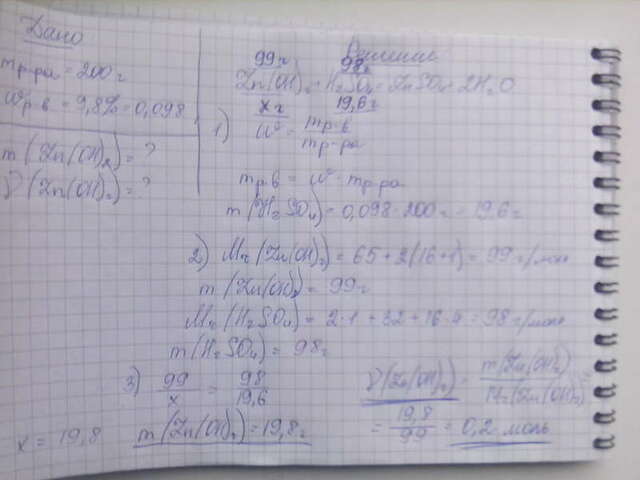 Дано
mр-ра = 200г
ωр-в = 9,8% = 0,098
m(Zn(OH)2) = ?
ν(Zn(OH)2) = ?
Решение
99г 98г
Zn(OH)2 + H2SO4 = ZnSO4 + 2H2O
x г 19,6г
1) ω = mр-в / mр-ра
mр-в = ω · mр-ра
m(H2SO4) = 0,098 · 200г = 19,6г
2) Mr(Zn(OH)2) = 65 + 2(16+1) = 99 г/моль
m(Zn(OH)2) = 99г
Mr(H2SO4) = 2·1 + 32 + 16·4 = 98 г/моль
m(H2SO4) = 98г
3) 99/x = 98/19,6
x = 19,8 m(Zn(OH)2) = 19,8г
ν(Zn(OH)2) = m(Zn(OH)2) / Mr(Zn(OH)2) =
= 19,8/99 = 0,2 моль